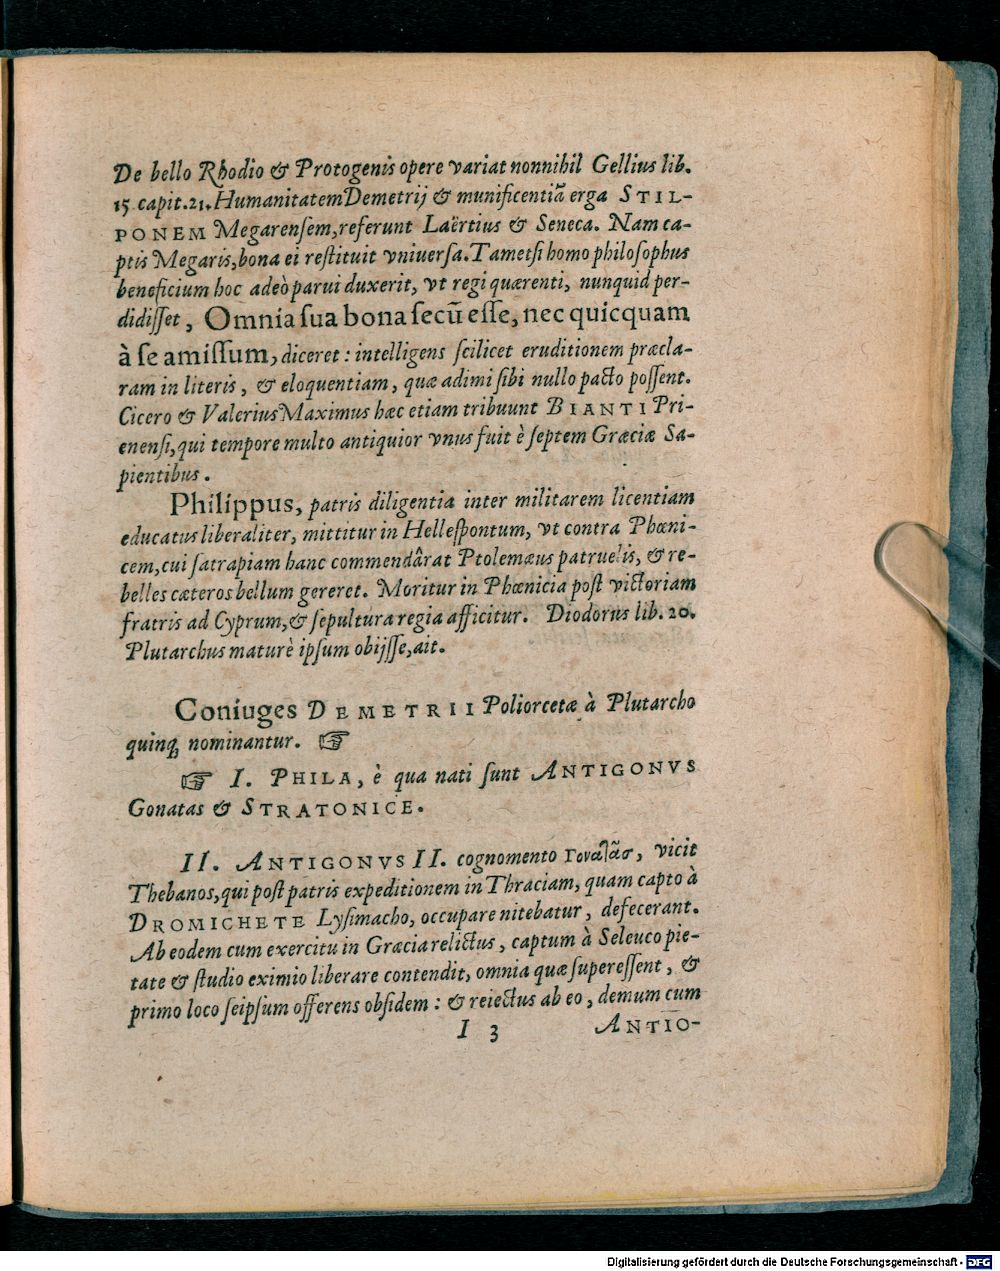 De bello Rhodio & Protogenis opere variat nonnihil Gellius lib.
15 capit.21. Humanitatem Demetrij & munificentiã erga STIL-
PONEM Megarensem, referunt Laërtius & Seneca. Nam ca-
ptis Megaris, bona ei restituit vniuersa. Tametsi homo philosophus
beneficium hoc adeò parui duxerit, vt regi quærenti, nunquid per-
didisset, Omnia sua bona secũ esse, nec quicquam
à se amissum, diceret: intelligens scilicet eruditionem præcla-
ram in literis, & eloquentiam, quæ adimi sibi nullo pacto possent.
Cicero & Valerius Maximus hæc etiam tribuunt BIANTI Pri-
enensi, qui tempore multo antiquior vnus fuit è septem Græciæ Sa-
pientibus.
Philippus, patris diligentia inter militarem licentiam
educatus liberaliter, mittitur in Hellespontum, vt contra Phœni-
cem, cui satrapiam hanc commendârat Ptolemæus patruelis, & re-
belles cæteros bellum gereret. Moritur in Phœnicia post victoriam
fratris ad Cyprum, & sepultura regia afficitur. Diodorus lib. 20.
Plutarchus maturè ipsum obijsse, ait.
Coniuges DEMETRII Poliorcetæ à Plutarcho
quinq; nominantur. ☞
☞ I. PHILA, è qua nati sunt ANTIGONVS
Gonatas & STRATONICE.
II. ANTIGONVS II. cognomento Γονατᾶς, vicit
Thebanos, qui post patris expeditionem in Thraciam, quam capto à
DROMICHETE Lysimacho, occupare nitebatur, defecerant.
Ab eodem cum exercitu in Græcia relictus, captum à Seleuco pie-
tate & studio eximio liberare contendit, omnia quæ superessent, &
primo loco seipsum offerens obsidem: & reiectus ab eo, demum cum
I 3 ANTIO-
Digitalisierung gefördert durch die Deutsche Forschungsgemeinschaft - DFG